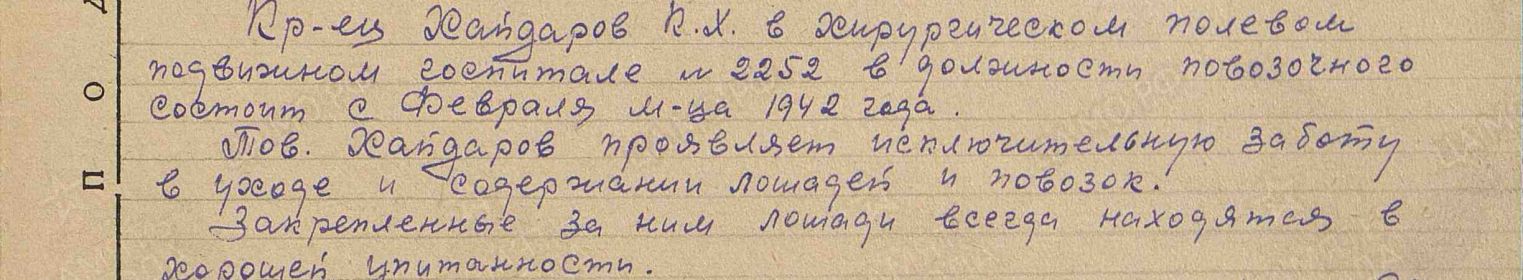 Кр-ец Хайдаров К.Х. в хирургическом полевом
подвижном госпитале № 2252 в должности повозочного
состоит с Февраля м-ца 1942 года.
Тов. Хайдаров проявляет исключительную заботу
в уходе и содержании лошадей и повозок.
Закрепленные за ним лошади всегда находятся в
хорошей упитанности.
П О